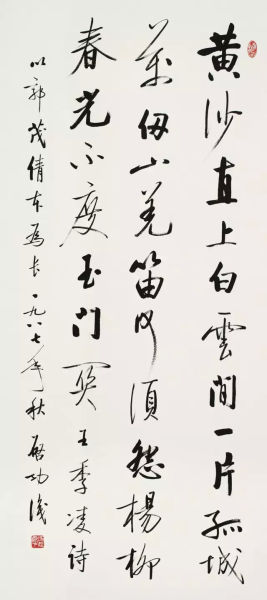 黄沙直上白雲間一片孤城
萬仞山羌笛何須怨楊柳
春光不度玉門關王季凌詩
以郭茂倩本爲長一九八七年秋啓功識